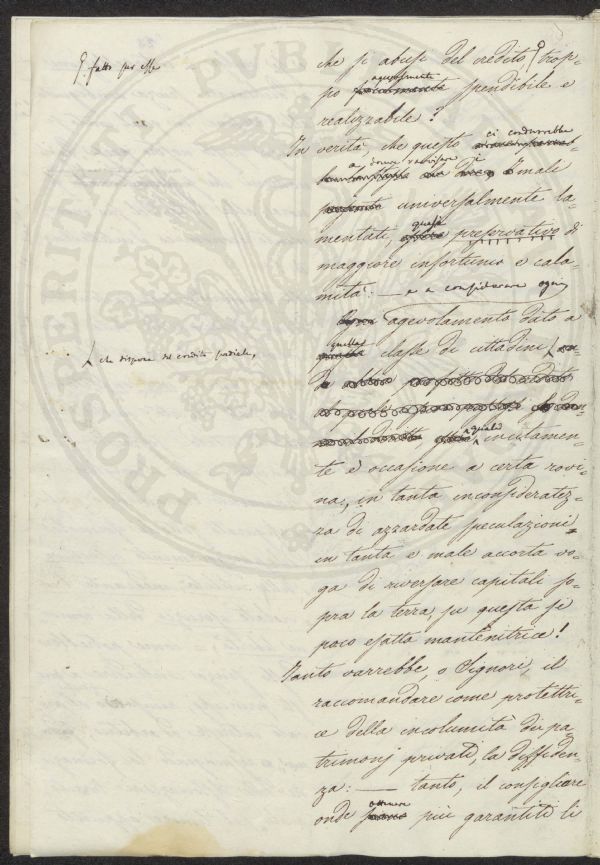 ꝗ. fatto per esse
che si abusi del credito, trop-
po agevolmente spendibile e
realizzabile?
In verità, che questo ci condurrebbe
a dover ravvisare i mali
universalmente la-
mentati, quasi preservativo di
maggiore infortunio e cala-
mità: — e a considerare ogni
agevolamento dato a
quella classe di cittadini
che dispone del credito fondiale,
quale, incitamen-
to e occasione a certa rovi-
na, in tanta inconsideratez-
za di azzardate speculazioni
in tanta e male accorta vo-
ga di riversare capitali so-
pra la terra, su questa sì
poco esatta mantenitrice!
Tanto varrebbe, o Signori, il
raccomandare come protettri-
ce della incolumità dei pa-
trimonj privati, la diffiden-
za: — tanto, il consigliare
onde ottenere più garantiti li
PVBLI
PROSPERITATI